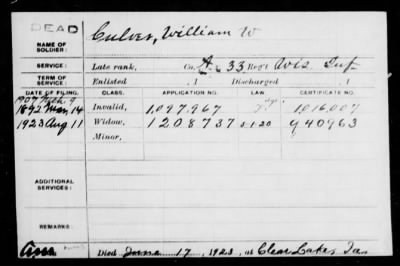 DEAD
Culver, William W
NAME OF SOLDIER:
SERVICE: Late rank, Co. A, 33 Reg't Wis. Inf.
TERM OF SERVICE: Enlisted , 1 Discharged , 1
DATE OF FILING. CLASS. APPLICATION NO. LAW CERTIFICATE NO.
1907
1892 Mar 14 Invalid, 1,097,967 1,016,007
1923 Aug 11 Widow, 1208737 940963
Minor,
ADDITIONAL SERVICES:
REMARKS:
Died June 17, 1923, at Clear Lake, Ia.